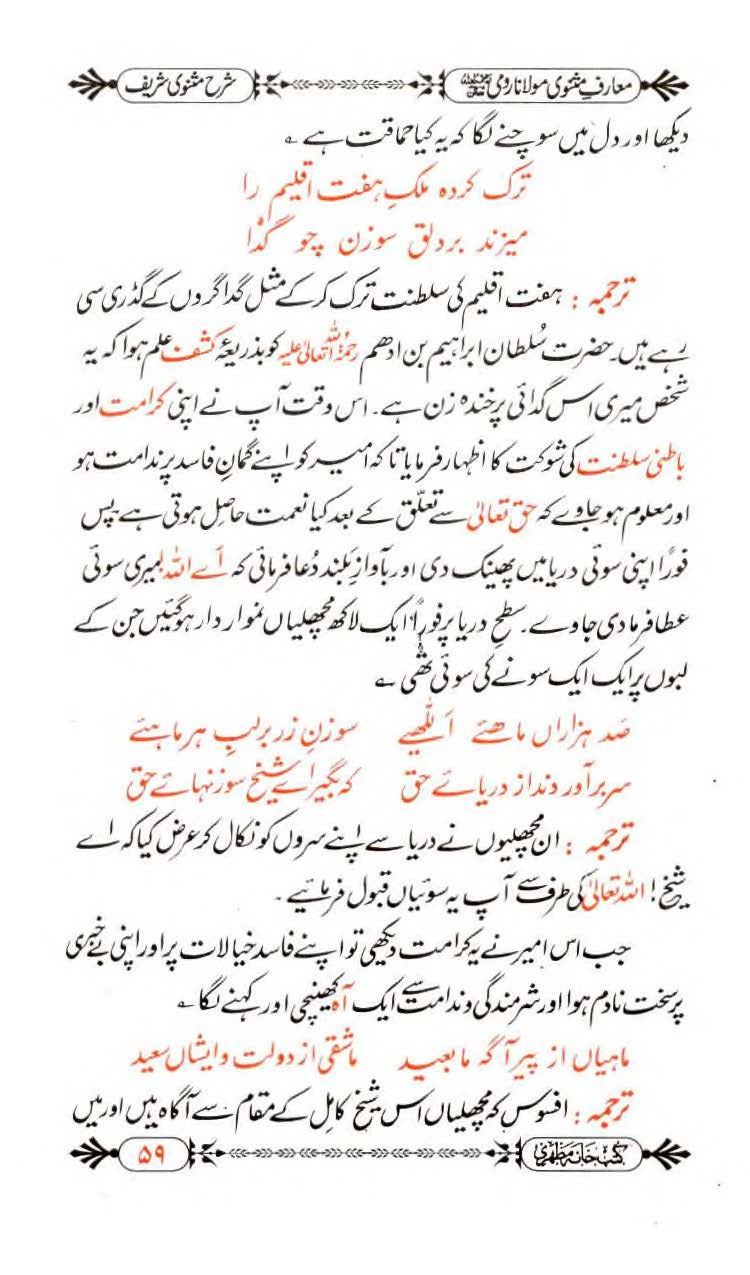 معارفِ مثنوی مولانا رومی رحمۃاللہ علیہ شرح مثنوی شریف
دیکھا اور دل میں سوچنے لگا کہ یہ کیا حماقت ہے ؎
ترک کردہ ملکِ ہفت اقلیم را
میزند بر دلق سوزن چو گدا
ترجمہ : ہفت اقلیم کی سلطنت ترک کرکے مثل گداگروں کے گدڑی سی
رہے ہیں۔ حضرت سُلطان ابراہیم بن ادھم رحمۃُ اللہ تعالیٰ علیہ کو بذریعۂ کشف علم ہوا کہ یہ
شخص میری اس گدائی پر خندہ زن ہے۔ اس وقت آپ نے اپنی کرامت اور
باطنی سلطنت کی شوکت کا اظہار فرمایا تاکہ امیر کو اپنے گمانِ فاسد پر ندامت ہو
اور معلوم ہو جاوے کہ حق تعالیٰ سے تعلّق کے بعد کیا نعمت حاصِل ہوتی ہے پس
فورًا اپنی سوئی دریا میں پھینک دی اور بآوازِ بلند دُعا فرمائی کہ اَے اللہ! میری سوئی
عطا فرما دی جاوے۔ سطحِ دریا پر فورًا ایک لاکھ مچھلیاں نمودار ہوگئیں جن کے
لبوں پر ایک ایک سونے کی سوئی تھی ؎
صَد ہزاراں ماہئے اَللّٰہیے سوزنِ زر بر لبِ ہر ماہئے
سر برآوردند از دریائے حق کہ بگیر اے شیخ سوزنہائے حق
ترجمہ : ان مچھلیوں نے دریا سے اپنے سروں کو نکال کر عرض کیا کہ اے
شیخ! اللہ تعالیٰ کی طرف سے آپ یہ سوئیاں قبول فرمائیے۔
جب اس امیر نے یہ کرامت دیکھی تو اپنے فاسد خیالات پر اور اپنی بے خبری
پر سخت نادم ہوا اور شرمندگی و ندامت سے ایک آہ کھینچی اور کہنے لگا ؎
ماہیاں از پیر آگہ ما بعید ما شقی از دولت و ایشاں سعید
ترجمہ : افسوس کہ مچھلیاں اس شیخ کامِل کے مقام سے آگاہ ہیں اور میں
کتب خانہ مظہری ۵۹